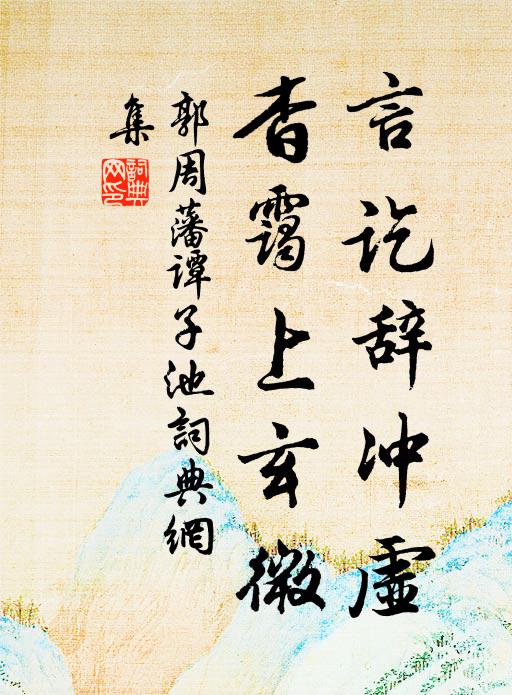 言讫辞冲虚
杳霭上玄微
郭周藩谭子池詞典網
集
詞典
网印